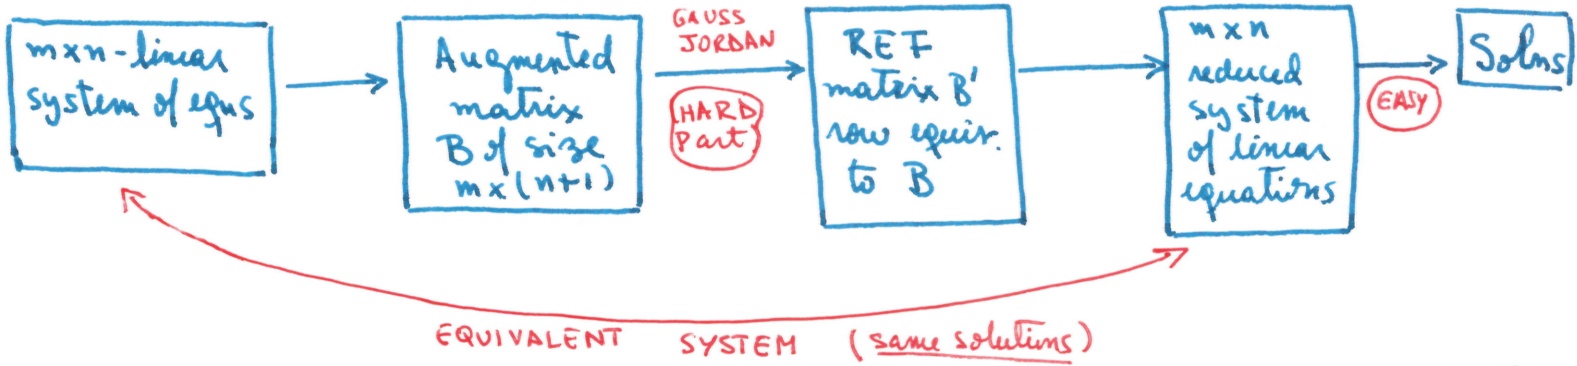 m×n-linear
system of eqns
Augmented
matrix
B of size
m×(n+1)
GAUSS
JORDAN
HARD
Part
REF
matrix B'
row equiv.
to B
m×n
reduced
system
of linear
equations
EASY
Solns
EQUIVALENT SYSTEM (same solutions)